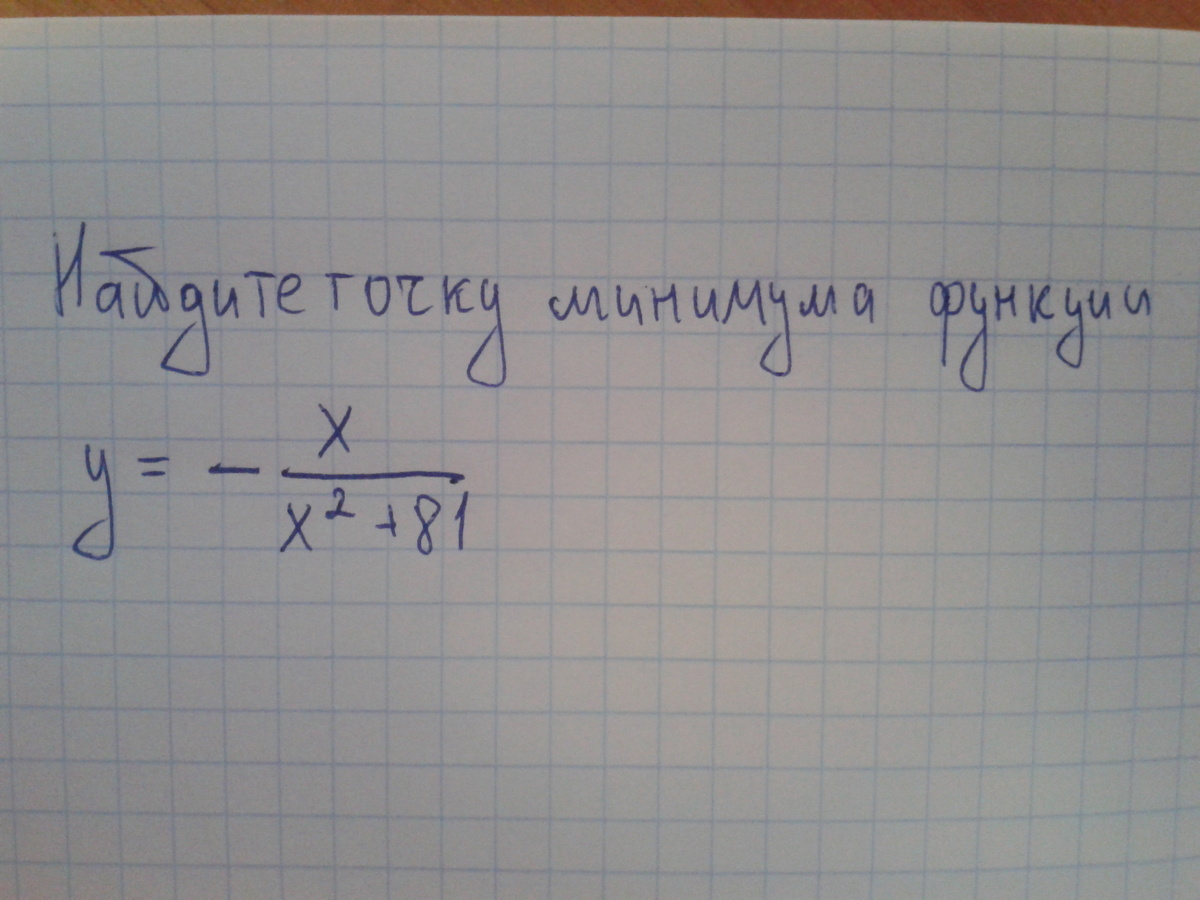 Найдите точку минимума функции
y = - x / (x² + 81)